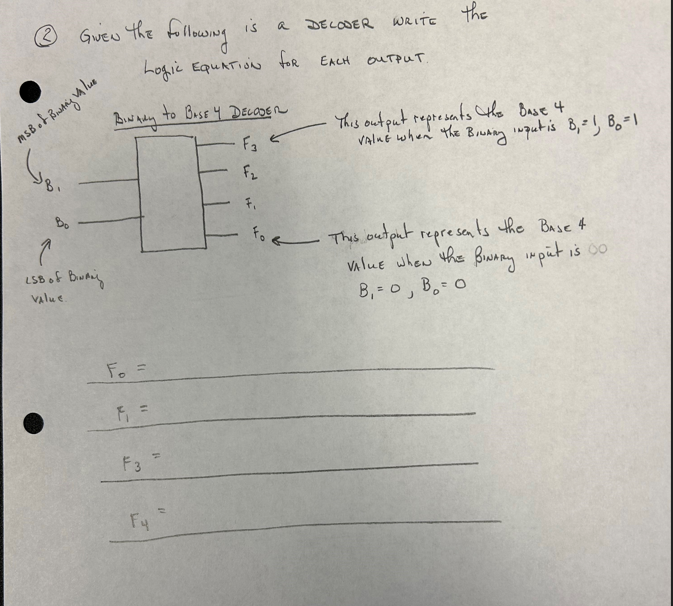 ② Given the following is a DECODER WRITE the
Logic EQUATION for EACH OUTPUT.
MSB of Binary Value
Binary to Base 4 DECODER
B₁
B₀
LSB of Binary
Value
F₃
F₂
F₁
F₀
This output represents the Base 4
VALUE when the Binary input is B₁=1, B₀=1
This output represents the Base 4
VALUE when the Binary input is 00
B₁=0, B₀=0
F₀ =
F₁ =
F₃ =
F₄ =